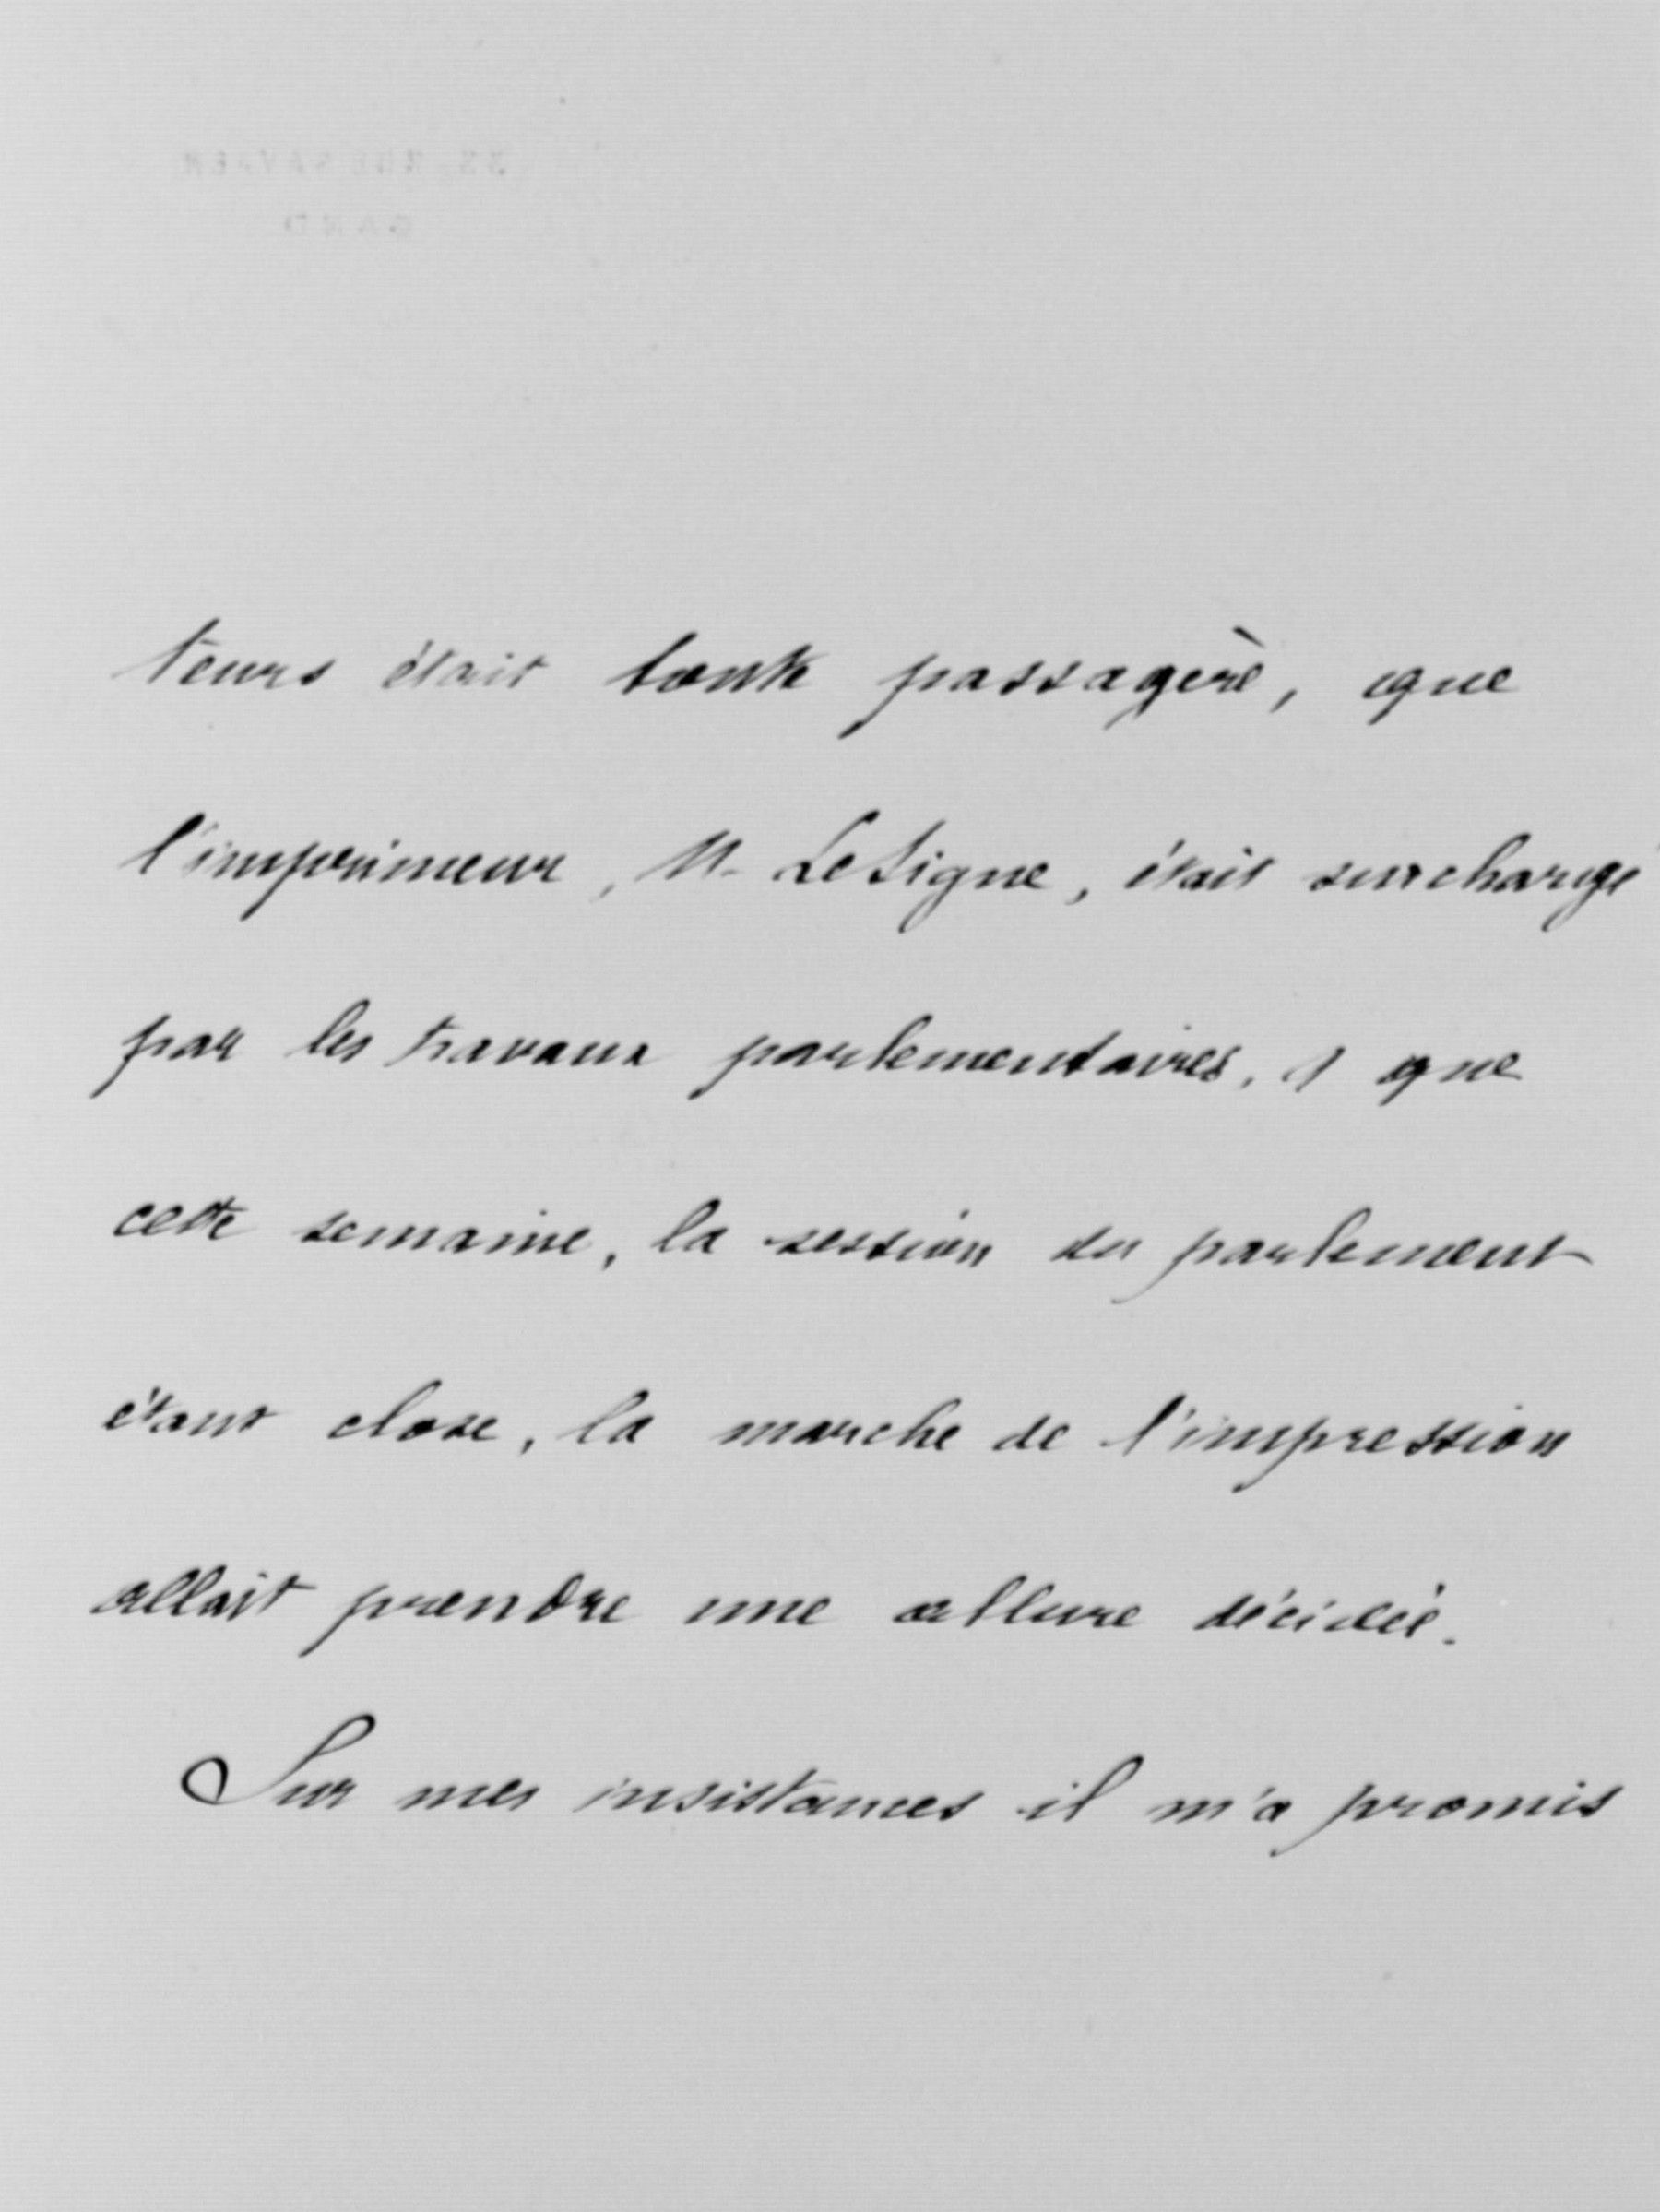 teurs était toute passagère, que
l'imprimeur, M. LeSigne, était surchargé
par les travaux parlementaires, & que
cette semaine, la session du parlement
étant close, la marche de l'impression
allait prendre une allure décidée.
Sur mes insistances il m'a promis